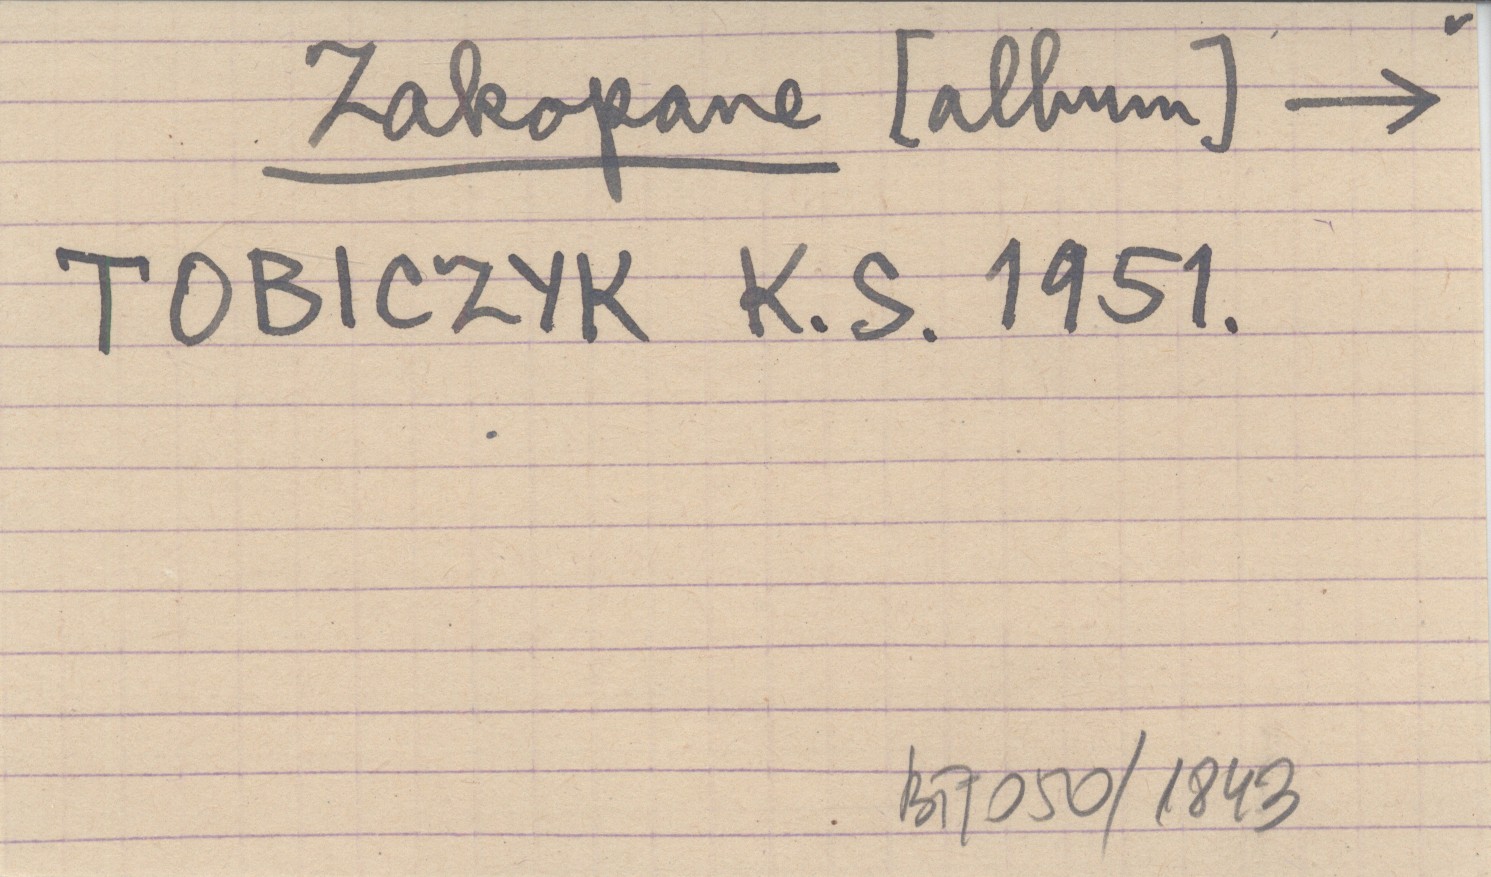 Zakopane [album] →
TOBICZYK K.S. 1951.
050/1843